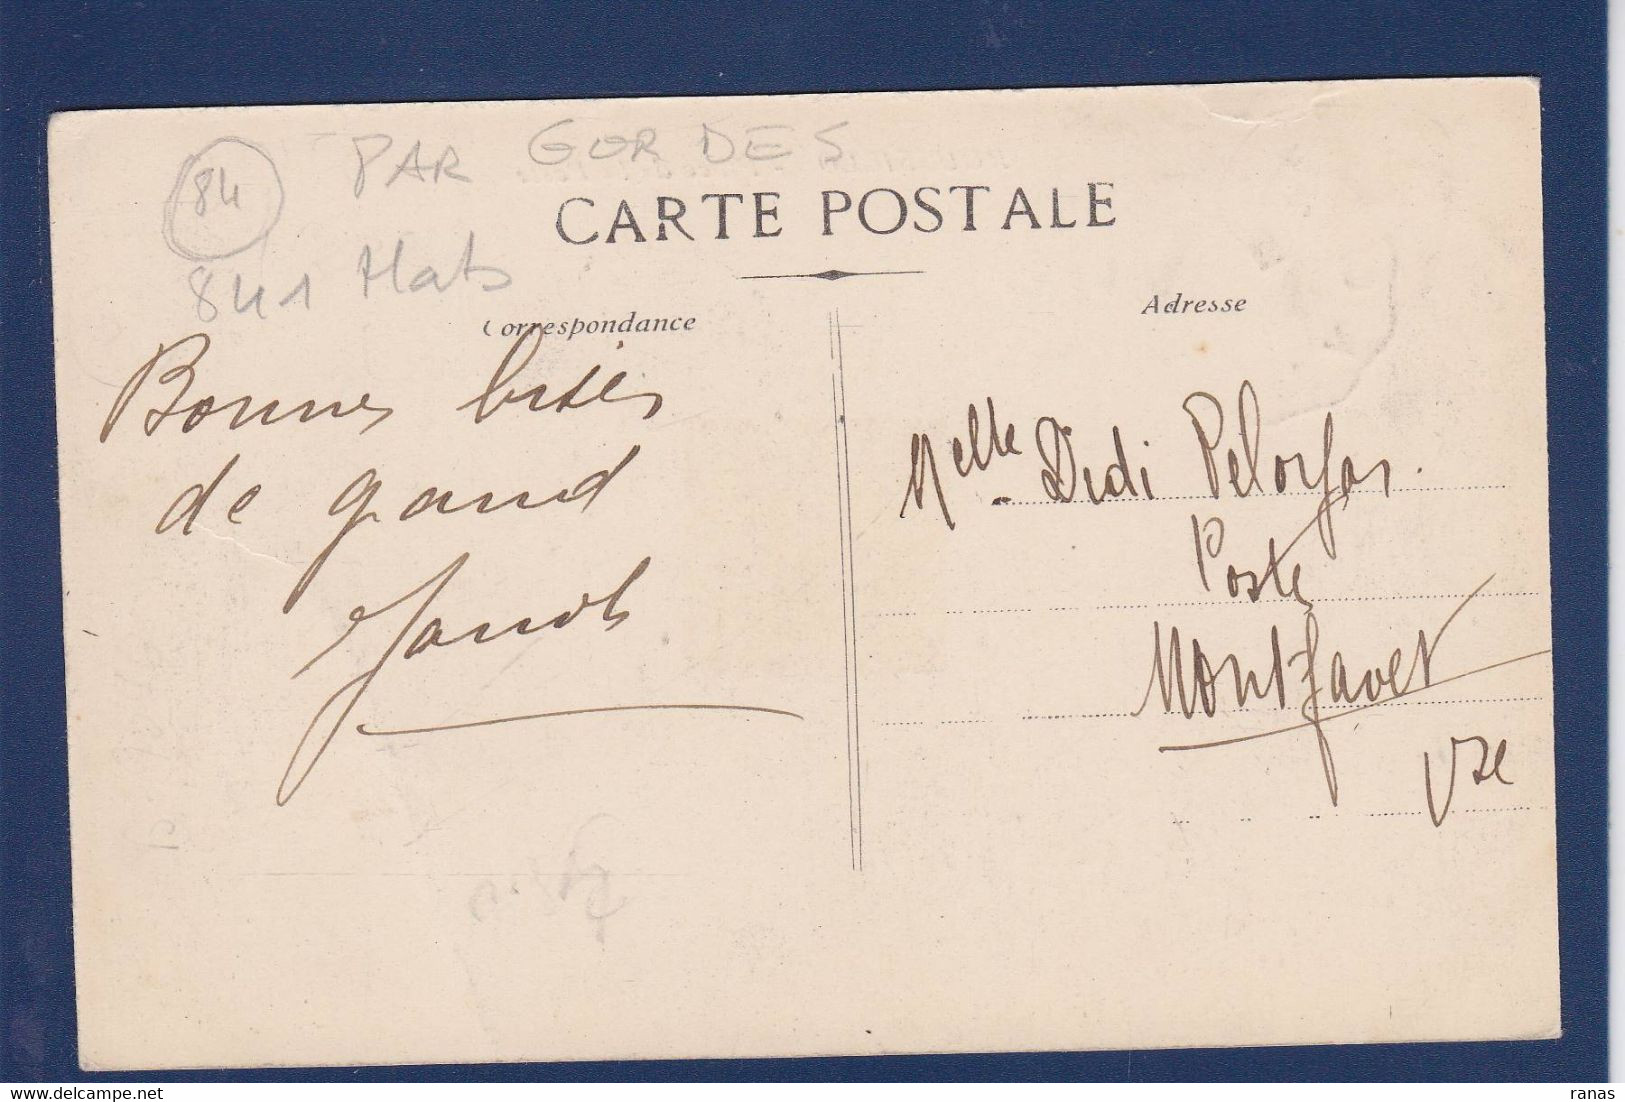 84
PAR GORDES
841 Habs
CARTE POSTALE
Correspondance
Adresse
Bonnes bises
de grand
Melle Didi Pelorjas.
Poste
Montfavet
Vse
delcampe.net
ranas